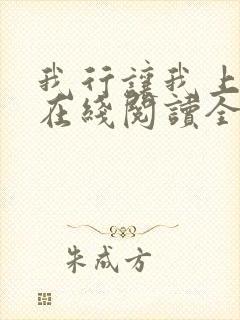 我行讓我上
在綫閱讀全
朱成方